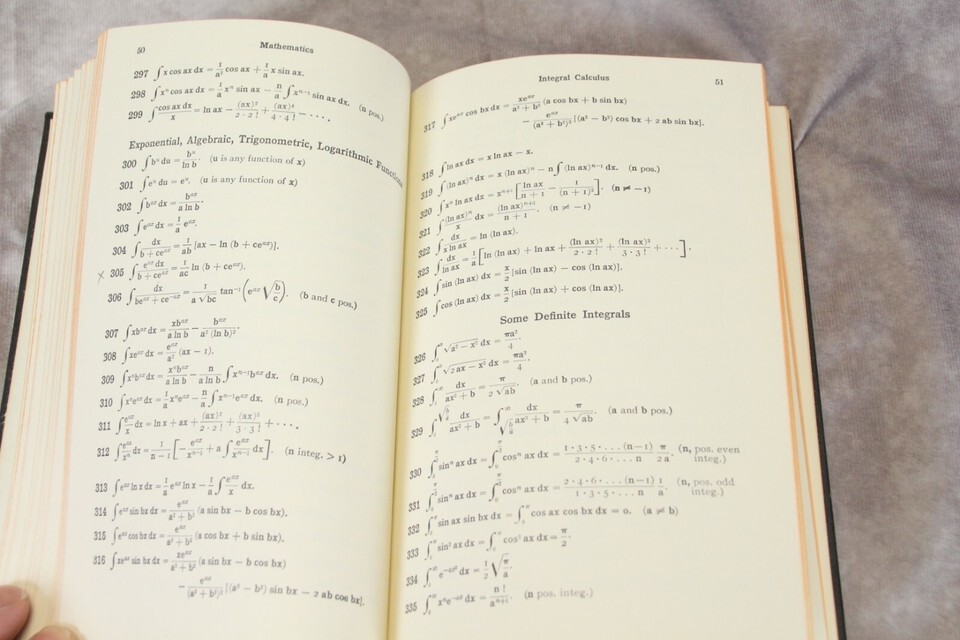 50
Mathematics
297 ∫ x cos ax dx = 1/a² cos ax + 1/a x sin ax.
298 ∫ xⁿ cos ax dx = 1/a xⁿ sin ax − n/a ∫ xⁿ⁻¹ sin ax dx. (n pos.)
299 ∫ cos ax dx / x = ln ax − (ax)²/(2·2!) + (ax)⁴/(4·4!) − · · · ·
Exponential, Algebraic, Trigonometric, Logarithmic Functions
300 ∫ bᵘ du = bᵘ/ln b. (u is any function of x)
301 ∫ eᵘ du = eᵘ. (u is any function of x)
302 ∫ bᵃˣ dx = bᵃˣ/(a ln b).
303 ∫ eᵃˣ dx = 1/a eᵃˣ.
304 ∫ dx/(b + ceᵃˣ) = 1/ab [ax − ln (b + ceᵃˣ)].
x 305 ∫ eᵃˣ dx/(b + ceᵃˣ) = 1/ac ln (b + ceᵃˣ).
306 ∫ dx/(beᵃˣ + ce⁻ᵃˣ) = 1/(a √bc) tan⁻¹ (eᵃˣ √(b/c)). (b and c pos.)
307 ∫ xbᵃˣ dx = xbᵃˣ/(a ln b) − bᵃˣ/(a² (ln b)²).
308 ∫ xeᵃˣ dx = eᵃˣ/a² (ax − 1).
309 ∫ xⁿbᵃˣ dx = xⁿbᵃˣ/(a ln b) − n/(a ln b) ∫ xⁿ⁻¹bᵃˣ dx. (n pos.)
310 ∫ xⁿeᵃˣ dx = 1/a xⁿeᵃˣ − n/a ∫ xⁿ⁻¹eᵃˣ dx. (n pos.)
311 ∫ eᵃˣ/x dx = ln x + ax + (ax)²/(2·2!) + (ax)³/(3·3!) + · · · ·
312 ∫ eᵃˣ/xⁿ dx = 1/(n − 1) [−eᵃˣ/xⁿ⁻¹ + a ∫ eᵃˣ/xⁿ⁻¹ dx]. (n integ. > 1)
313 ∫ eᵃˣ ln x dx = 1/a eᵃˣ ln x − 1/a ∫ eᵃˣ/x dx.
314 ∫ eᵃˣ sin bx dx = eᵃˣ/(a² + b²) (a sin bx − b cos bx).
315 ∫ eᵃˣ cos bx dx = eᵃˣ/(a² + b²) (a cos bx + b sin bx).
316 ∫ xeᵃˣ sin bx dx = xeᵃˣ/(a² + b²) (a sin bx − b cos bx)
− eᵃˣ/(a² + b²)² [(a² − b²) sin bx − 2 ab cos bx].
Integral Calculus
51
317 ∫ xeᵃˣ cos bx dx = xeᵃˣ/(a² + b²) (a cos bx + b sin bx)
− eᵃˣ/(a² + b²)² [(a² − b²) cos bx + 2 ab sin bx].
318 ∫ ln ax dx = x ln ax − x.
319 ∫ (ln ax)ⁿ dx = x (ln ax)ⁿ − n ∫ (ln ax)ⁿ⁻¹ dx. (n pos.)
320 ∫ xⁿ ln ax dx = xⁿ⁺¹ [ln ax/(n + 1) − 1/(n + 1)²]. (n ≠ −1)
321 ∫ (ln ax)ⁿ/x dx = (ln ax)ⁿ⁺¹/(n + 1). (n ≠ −1)
322 ∫ dx/(x ln ax) = ln (ln ax).
323 ∫ dx/ln ax = 1/a [ln (ln ax) + ln ax + (ln ax)²/(2·2!) + (ln ax)³/(3·3!) + · · ·].
324 ∫ sin (ln ax) dx = x/2 [sin (ln ax) − cos (ln ax)].
325 ∫ cos (ln ax) dx = x/2 [sin (ln ax) + cos (ln ax)].
Some Definite Integrals
326 ∫₀ᵃ √(a² − x²) dx = πa²/4.
327 ∫₀ᵃ √(2 ax − x²) dx = πa²/4.
328 ∫₀^∞ dx/(ax² + b) = π/(2 √ab). (a and b pos.)
329 ∫₀^√(b/a) dx/(ax² + b) = ∫_√(b/a)^∞ dx/(ax² + b) = π/(4 √ab). (a and b pos.)
330 ∫₀^(π/2) sinⁿ ax dx = ∫₀^(π/2) cosⁿ ax dx = 1·3·5· . . . (n−1)/(2·4·6· . . . n) π/2a. (n, pos. even integ.)
331 ∫₀^(π/2) sinⁿ ax dx = ∫₀^(π/2) cosⁿ ax dx = 2·4·6· . . . (n−1)/(1·3·5· . . . n) 1/a. (n, pos. odd integ.)
332 ∫₀^π sin ax sin bx dx = ∫₀^π cos ax cos bx dx = 0. (a ≠ b)
333 ∫₀^π sin² ax dx = ∫₀^π cos² ax dx = π/2.
334 ∫₀^∞ e^(−ax²) dx = 1/2 √(π/a).
335 ∫₀^∞ xⁿe⁻ᵃˣ dx = n!/aⁿ⁺¹. (n pos. integ.)